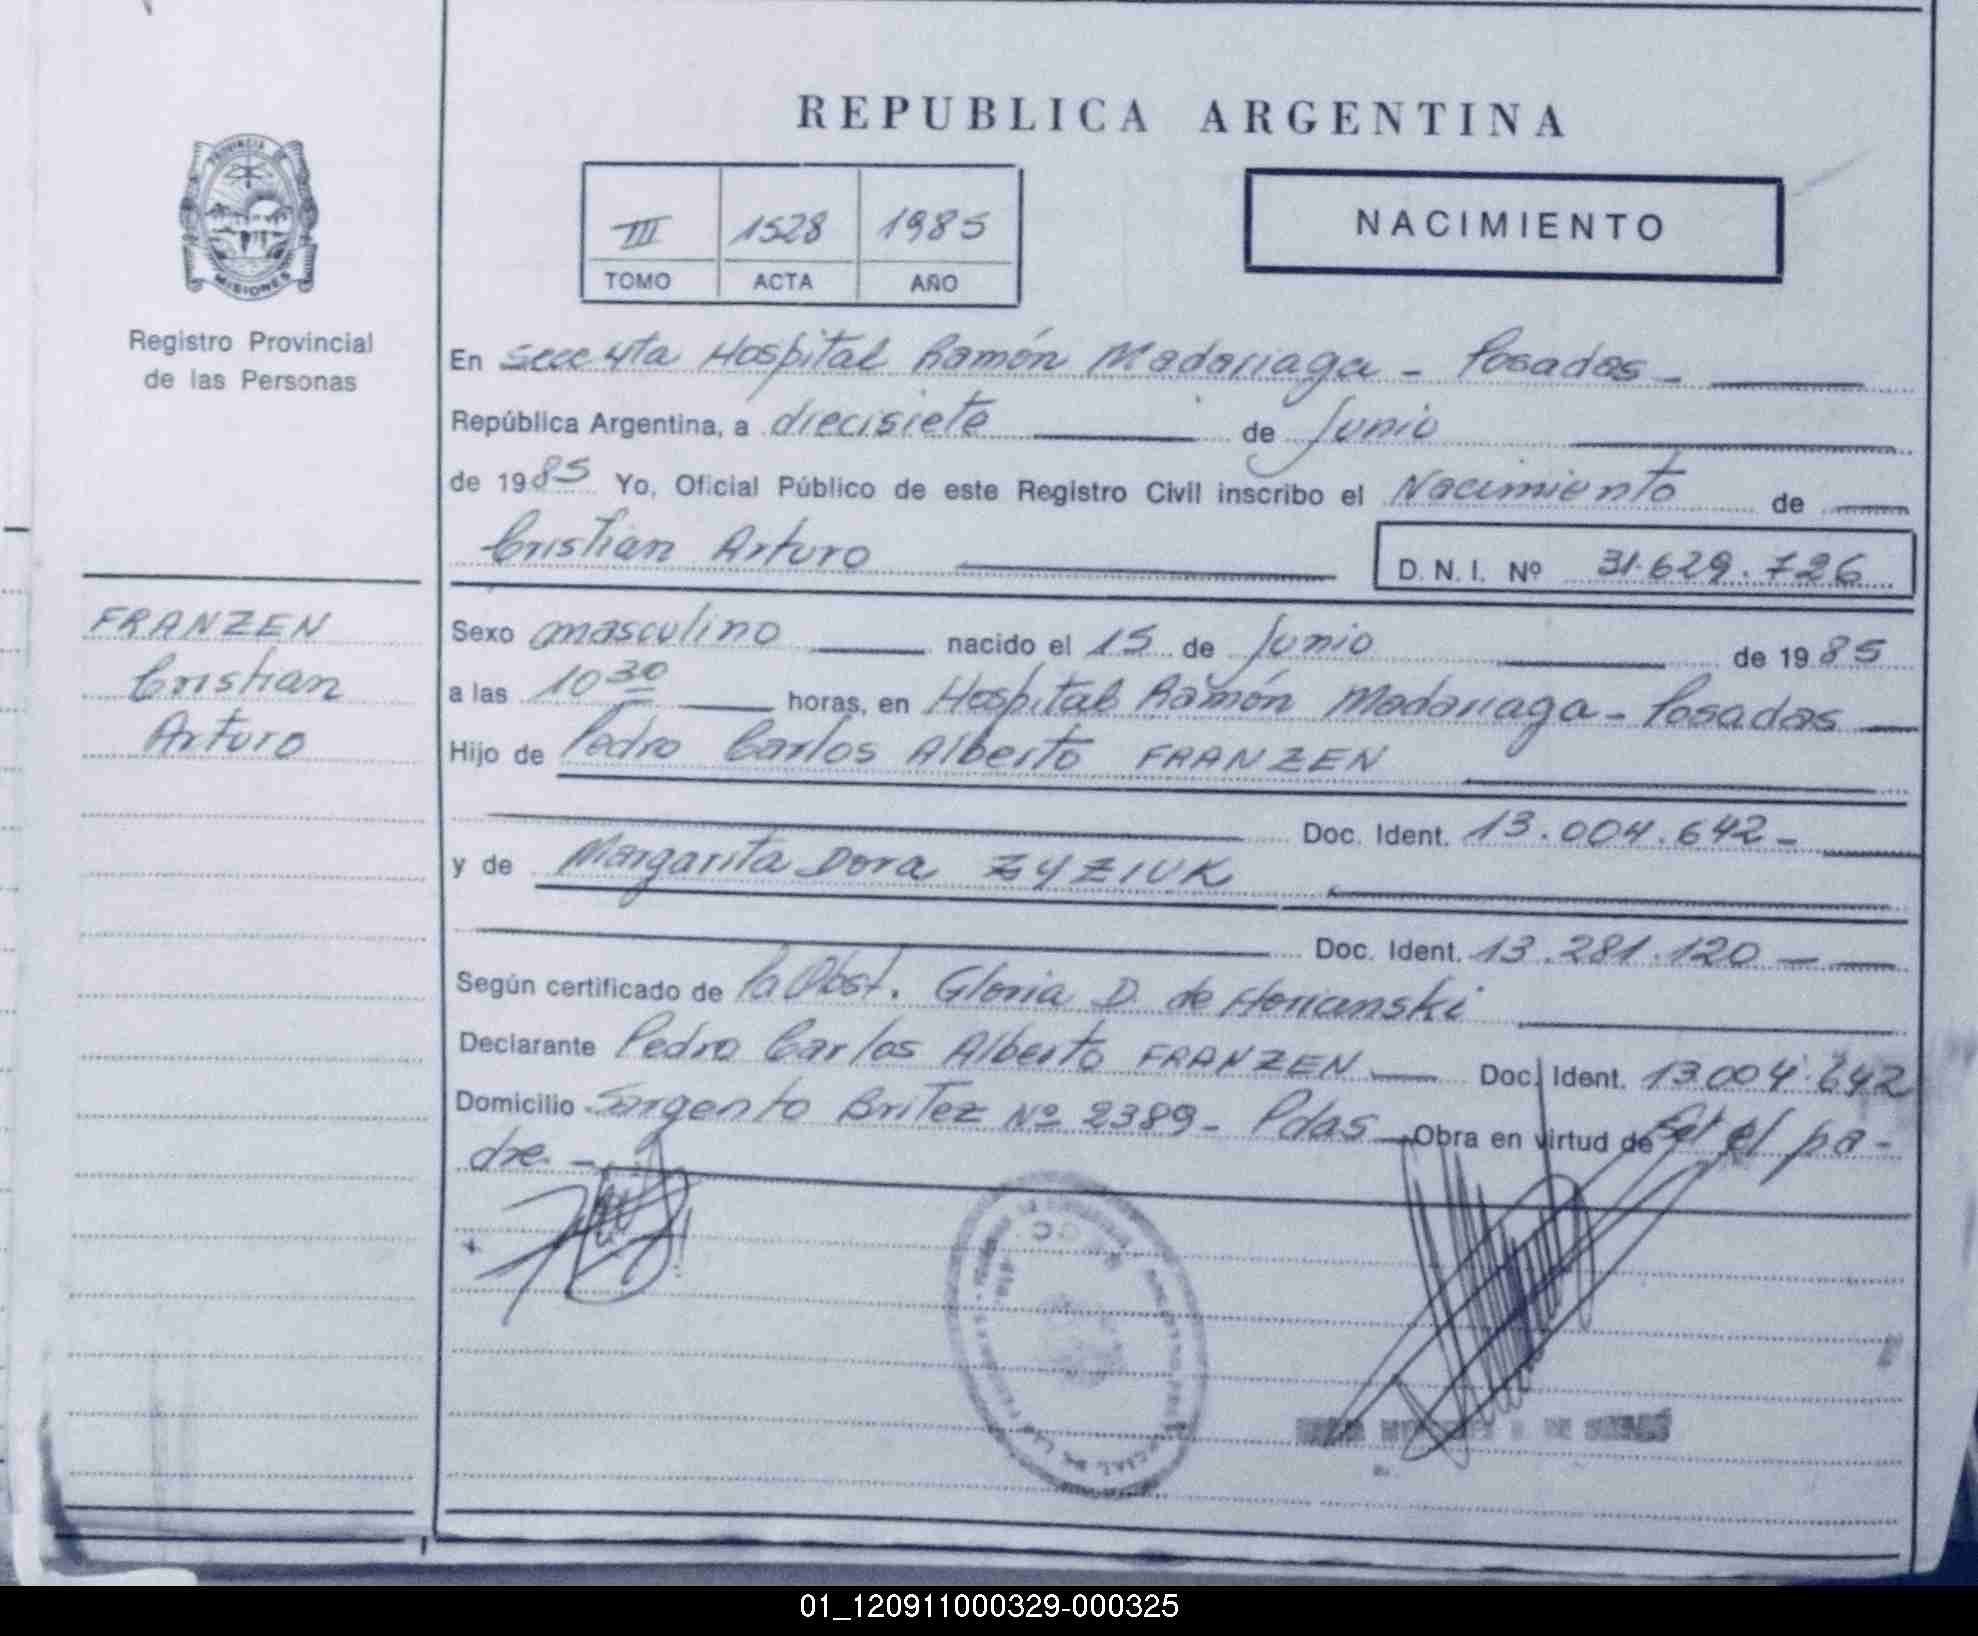 REPUBLICA ARGENTINA
PROVINCIA DE
MISIONES
Registro Provincial
de las Personas
III 1528 1985
TOMO ACTA AÑO
NACIMIENTO
En Secc 4ta Hospital Ramón Madariaga - Posadas -
República Argentina, a diecisiete de Junio
de 1985 Yo, Oficial Público de este Registro Civil inscribo el Nacimiento de
Cristian Arturo
D. N. I. Nº 31.629.726
FRANZEN
Cristian
Arturo
Sexo masculino nacido el 15 de Junio de 1985
a las 10 30 horas, en Hospital Ramón Madariaga - Posadas
Hijo de Pedro Carlos Alberto FRANZEN
Doc. Ident. 13.004.642 -
y de Margarita Dora ZYZIUK
Doc. Ident. 13.281.120 -
Según certificado de la Obst. Gloria D. de
Declarante Pedro Carlos Alberto FRANZEN Doc. Ident. 13004.642
Domicilio Sargento Britez Nº 2389 - Pdas Obra en virtud de el pa-
dre. -
01_120911000329-000325